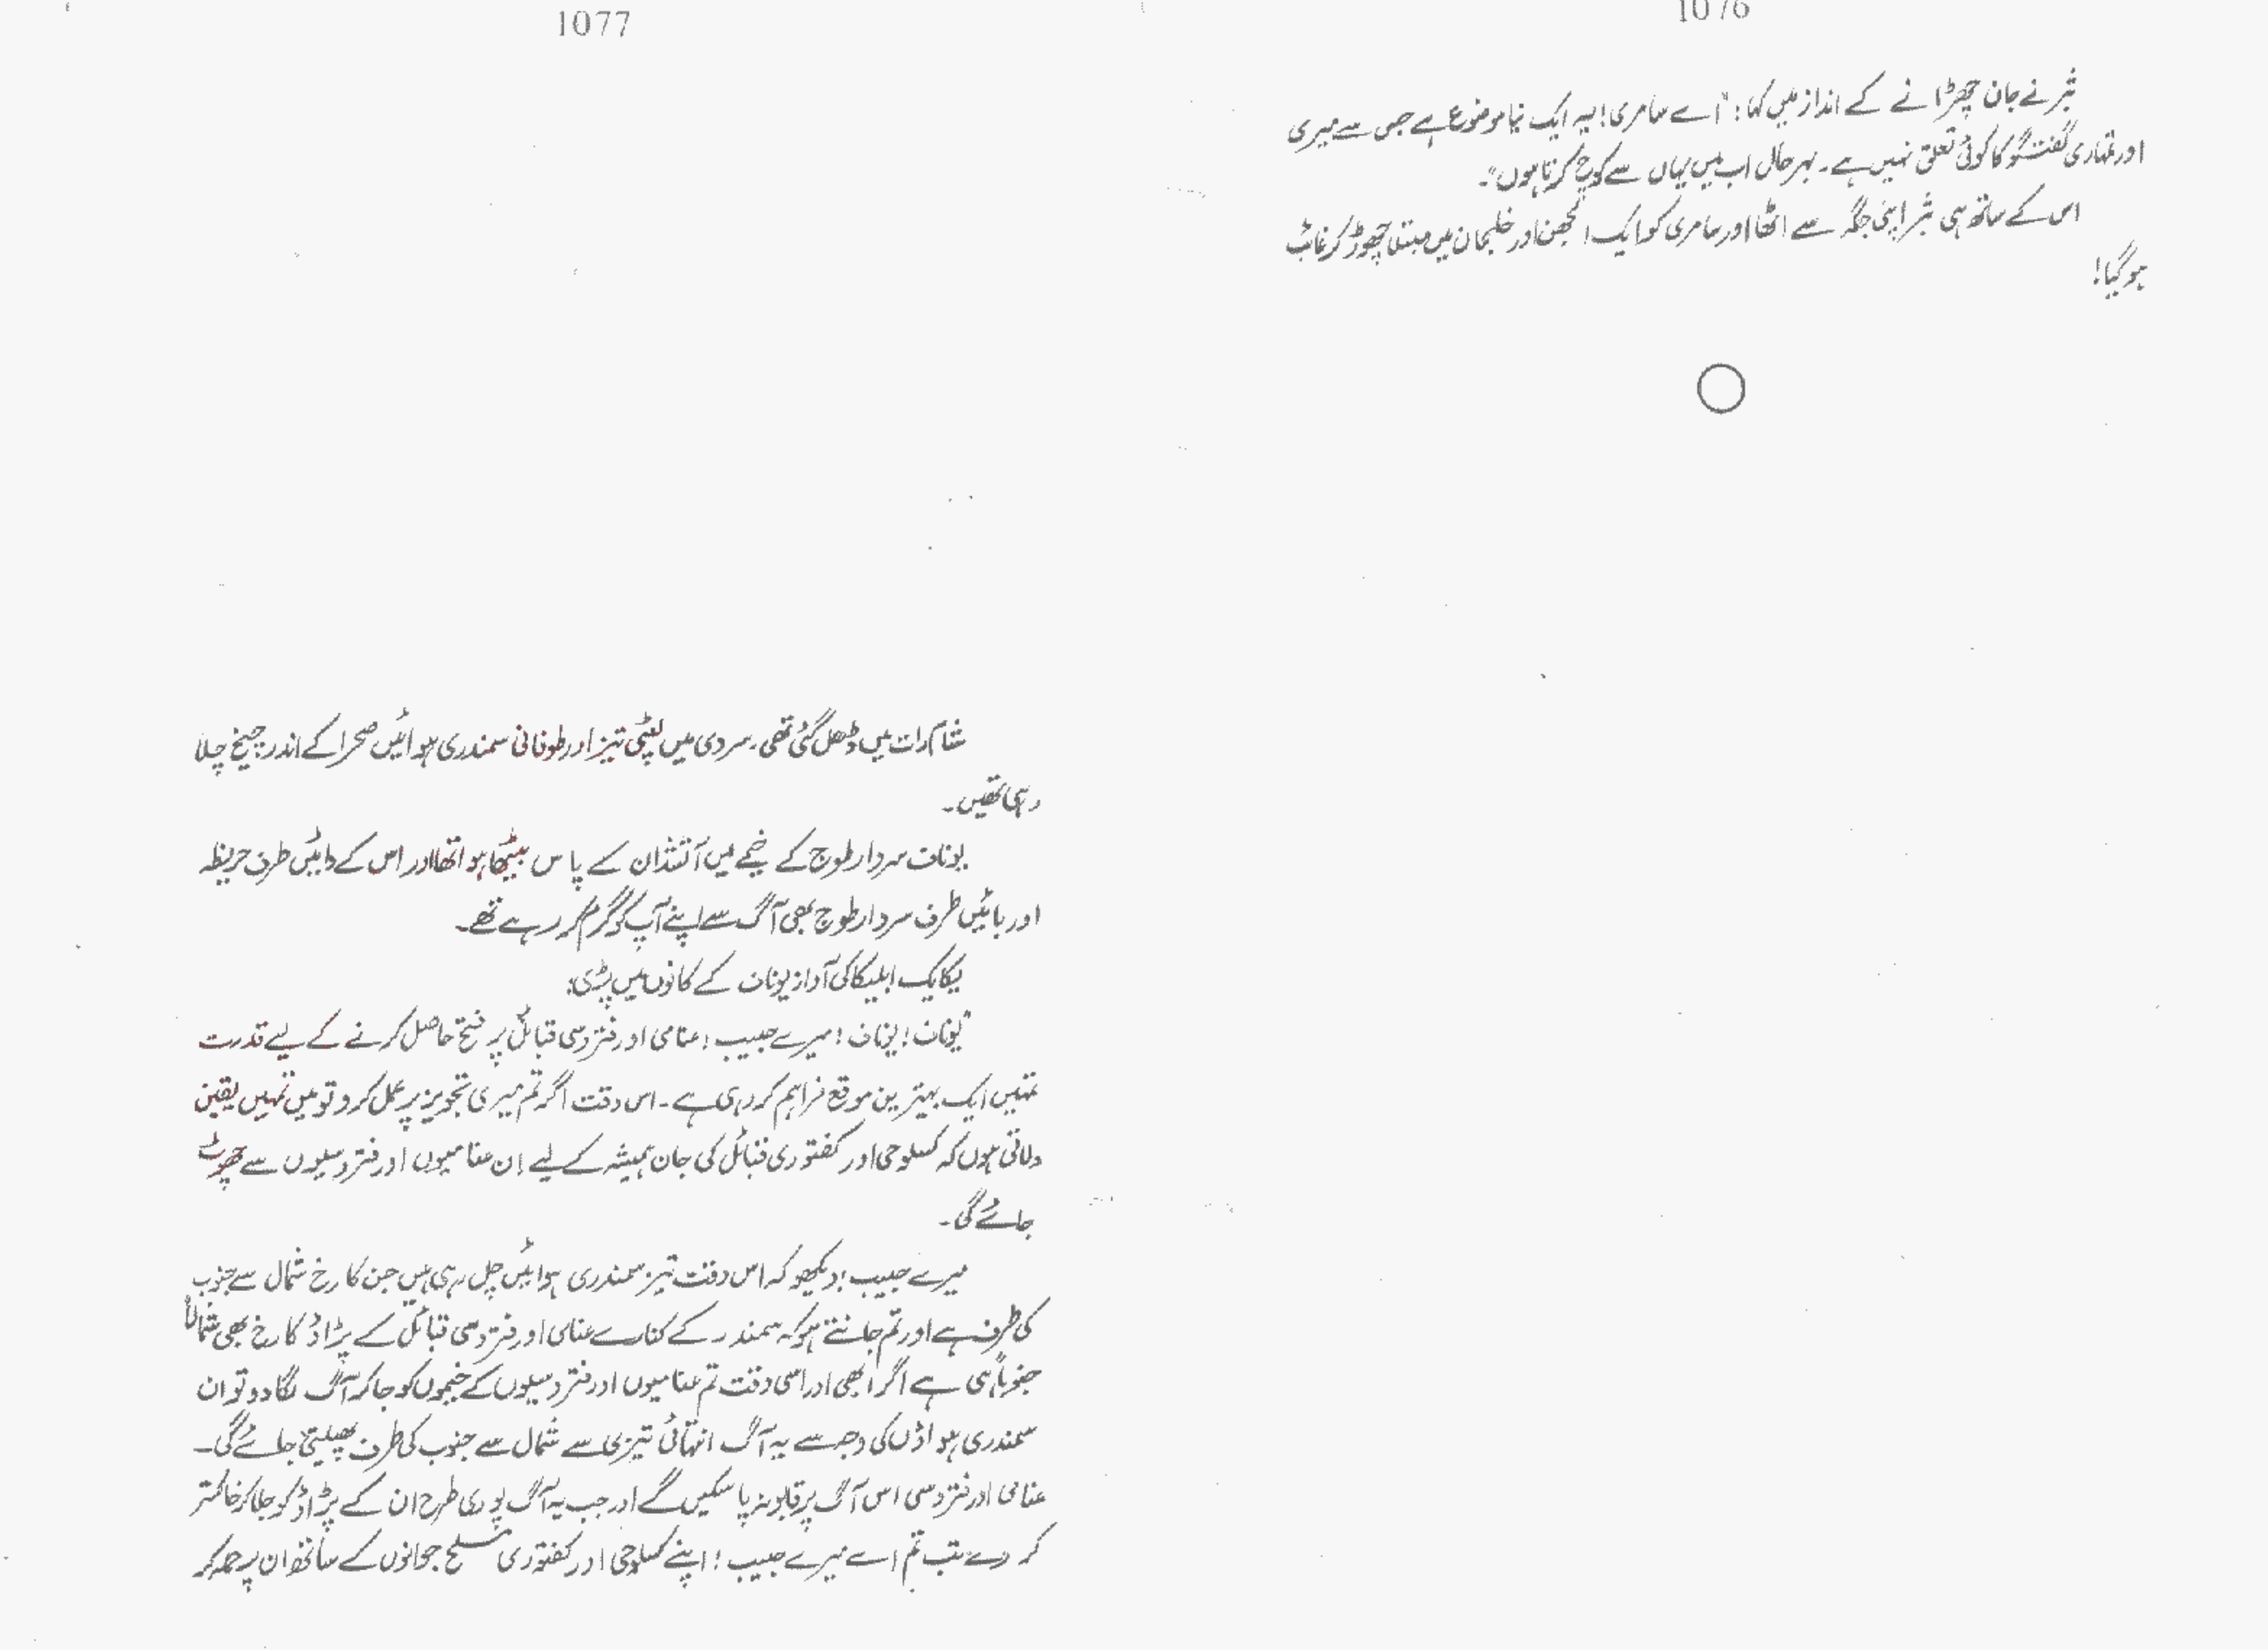 1076
ثبر نے جان چھڑانے کے انداز میں کہا: "اے سامری! یہ ایک نیا موضوع ہے جس سے میری
اور تمہاری گفتگو کا کوئی تعلق نہیں ہے۔ بہرحال اب میں یہاں سے کوچ کرتا ہوں"۔
اس کے ساتھ ہی ثبر اپنی جگہ سے اٹھا اور سامری کو ایک الجھن اور خلجان میں مبتلا چھوڑ کر غائب
ہو گیا!
1077
شام رات میں ڈھل گئی تھی۔ سردی میں لپٹی تیز اور طوفانی سمندری ہوائیں صحرا کے اندر چیخ چلا
رہی تھیں۔
یوناف سردار طوج کے خیمے میں آتشدان کے پاس بیٹھا ہوا تھا اور اس کے دائیں طرف حریظہ
اور بائیں طرف سردار طوج بھی آگ سے اپنے آپ کو گرم کر رہے تھے۔
یکایک ابلیکا کی آواز یوناف کے کانوں میں پڑی:
"یوناف! یوناف! میرے حبیب! عنامی اور فتروسی قبائل پر فتح حاصل کرنے کے لیے قدرت
تمہیں ایک بہترین موقع فراہم کر رہی ہے۔ اس وقت اگر تم میری تجویز پر عمل کرو تو میں تمہیں یقین
دلاتی ہوں کہ کسلوحی اور کفتوری قبائل کی جان ہمیشہ کے لیے ان عنامیوں اور فتروسیوں سے چھوٹ
جائے گی۔
میرے حبیب! دیکھو کہ اس وقت تیز سمندری ہوائیں چل رہی ہیں جن کا رخ شمال سے جنوب
کی طرف ہے اور تم جانتے ہو کہ سمندر کے کنارے عنامی اور فتروسی قبائل کے پڑاؤ کا رخ بھی شمالاً
جنوباً ہی ہے اگر ابھی اور اسی وقت تم عنامیوں اور فتروسیوں کے خیموں کو جا کر آگ لگا دو تو ان
سمندری ہواؤں کی وجہ سے یہ آگ انتہائی تیزی سے شمال سے جنوب کی طرف پھیلتی جائے گی۔
عنامی اور فتروسی اس آگ پر قابو نہ پا سکیں گے اور جب یہ آگ پوری طرح ان کے پڑاؤ کو جلا کر خاکستر
کر دے تب تم اے میرے حبیب! اپنے کسلوحی اور کفتوری مسلح جوانوں کے ساتھ ان پر حملہ کر